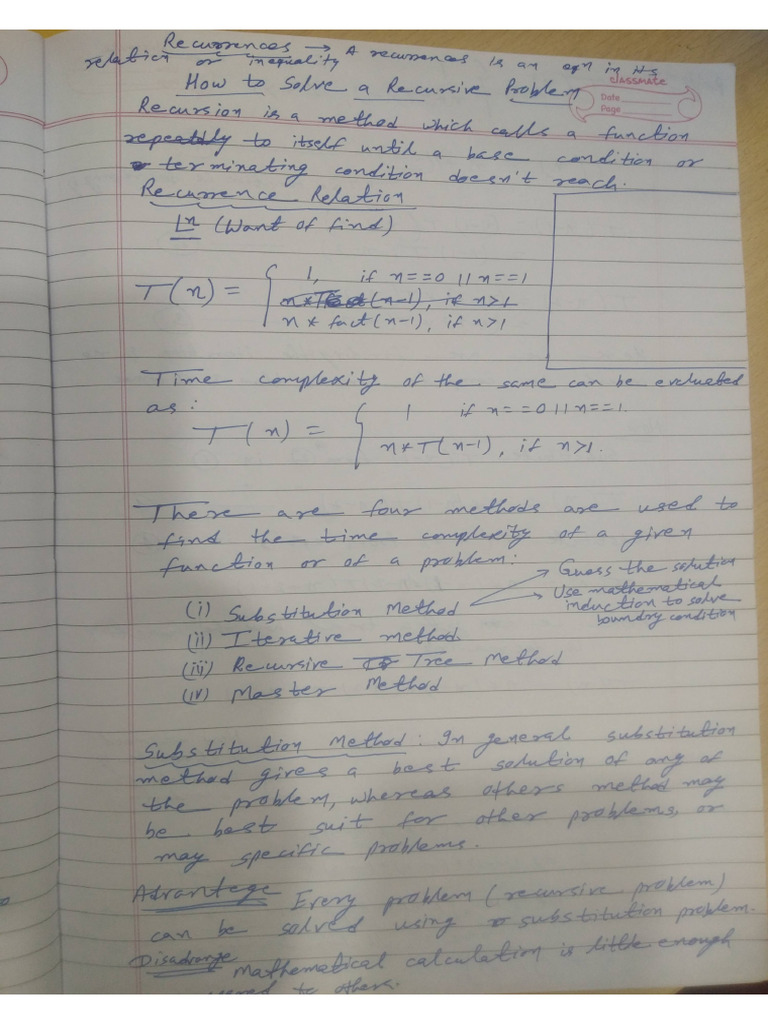 Recurrences → A recurrences is an eqn in its
relation or inequality
classmate
Date
Page
How to Solve a Recursive Problem
Recursion is a method which calls a function
repeatedly to itself until a base condition or
terminating condition doesn't reach.
Recurrence Relation
Ln (Want of find)
T(n) = { 1, if n==0 || n==1
n * fact(n-1), if n>1
n * fact(n-1), if n>1
Time complexity of the same can be evaluated
as:
T(n) = { 1 if n==0 || n==1.
n*T(n-1), if n>1.
There are four methods are used to
find the time complexity of a given
function or of a problem:
(i) Substitution Method → Guess the solution
→ Use mathematical
induction to solve
boundry condition
(ii) Iterative method
(iii) Recursive Tree Method
(iv) Master Method
Substitution Method: In general substitution
method gives a best solution of any of
the problem, whereas others method may
be best suit for other problems, or
may specific problems.
Advantege Every problem (recursive problem)
can be solved using substitution problem.
Disadvange Mathematical calculation is little enough
to others.